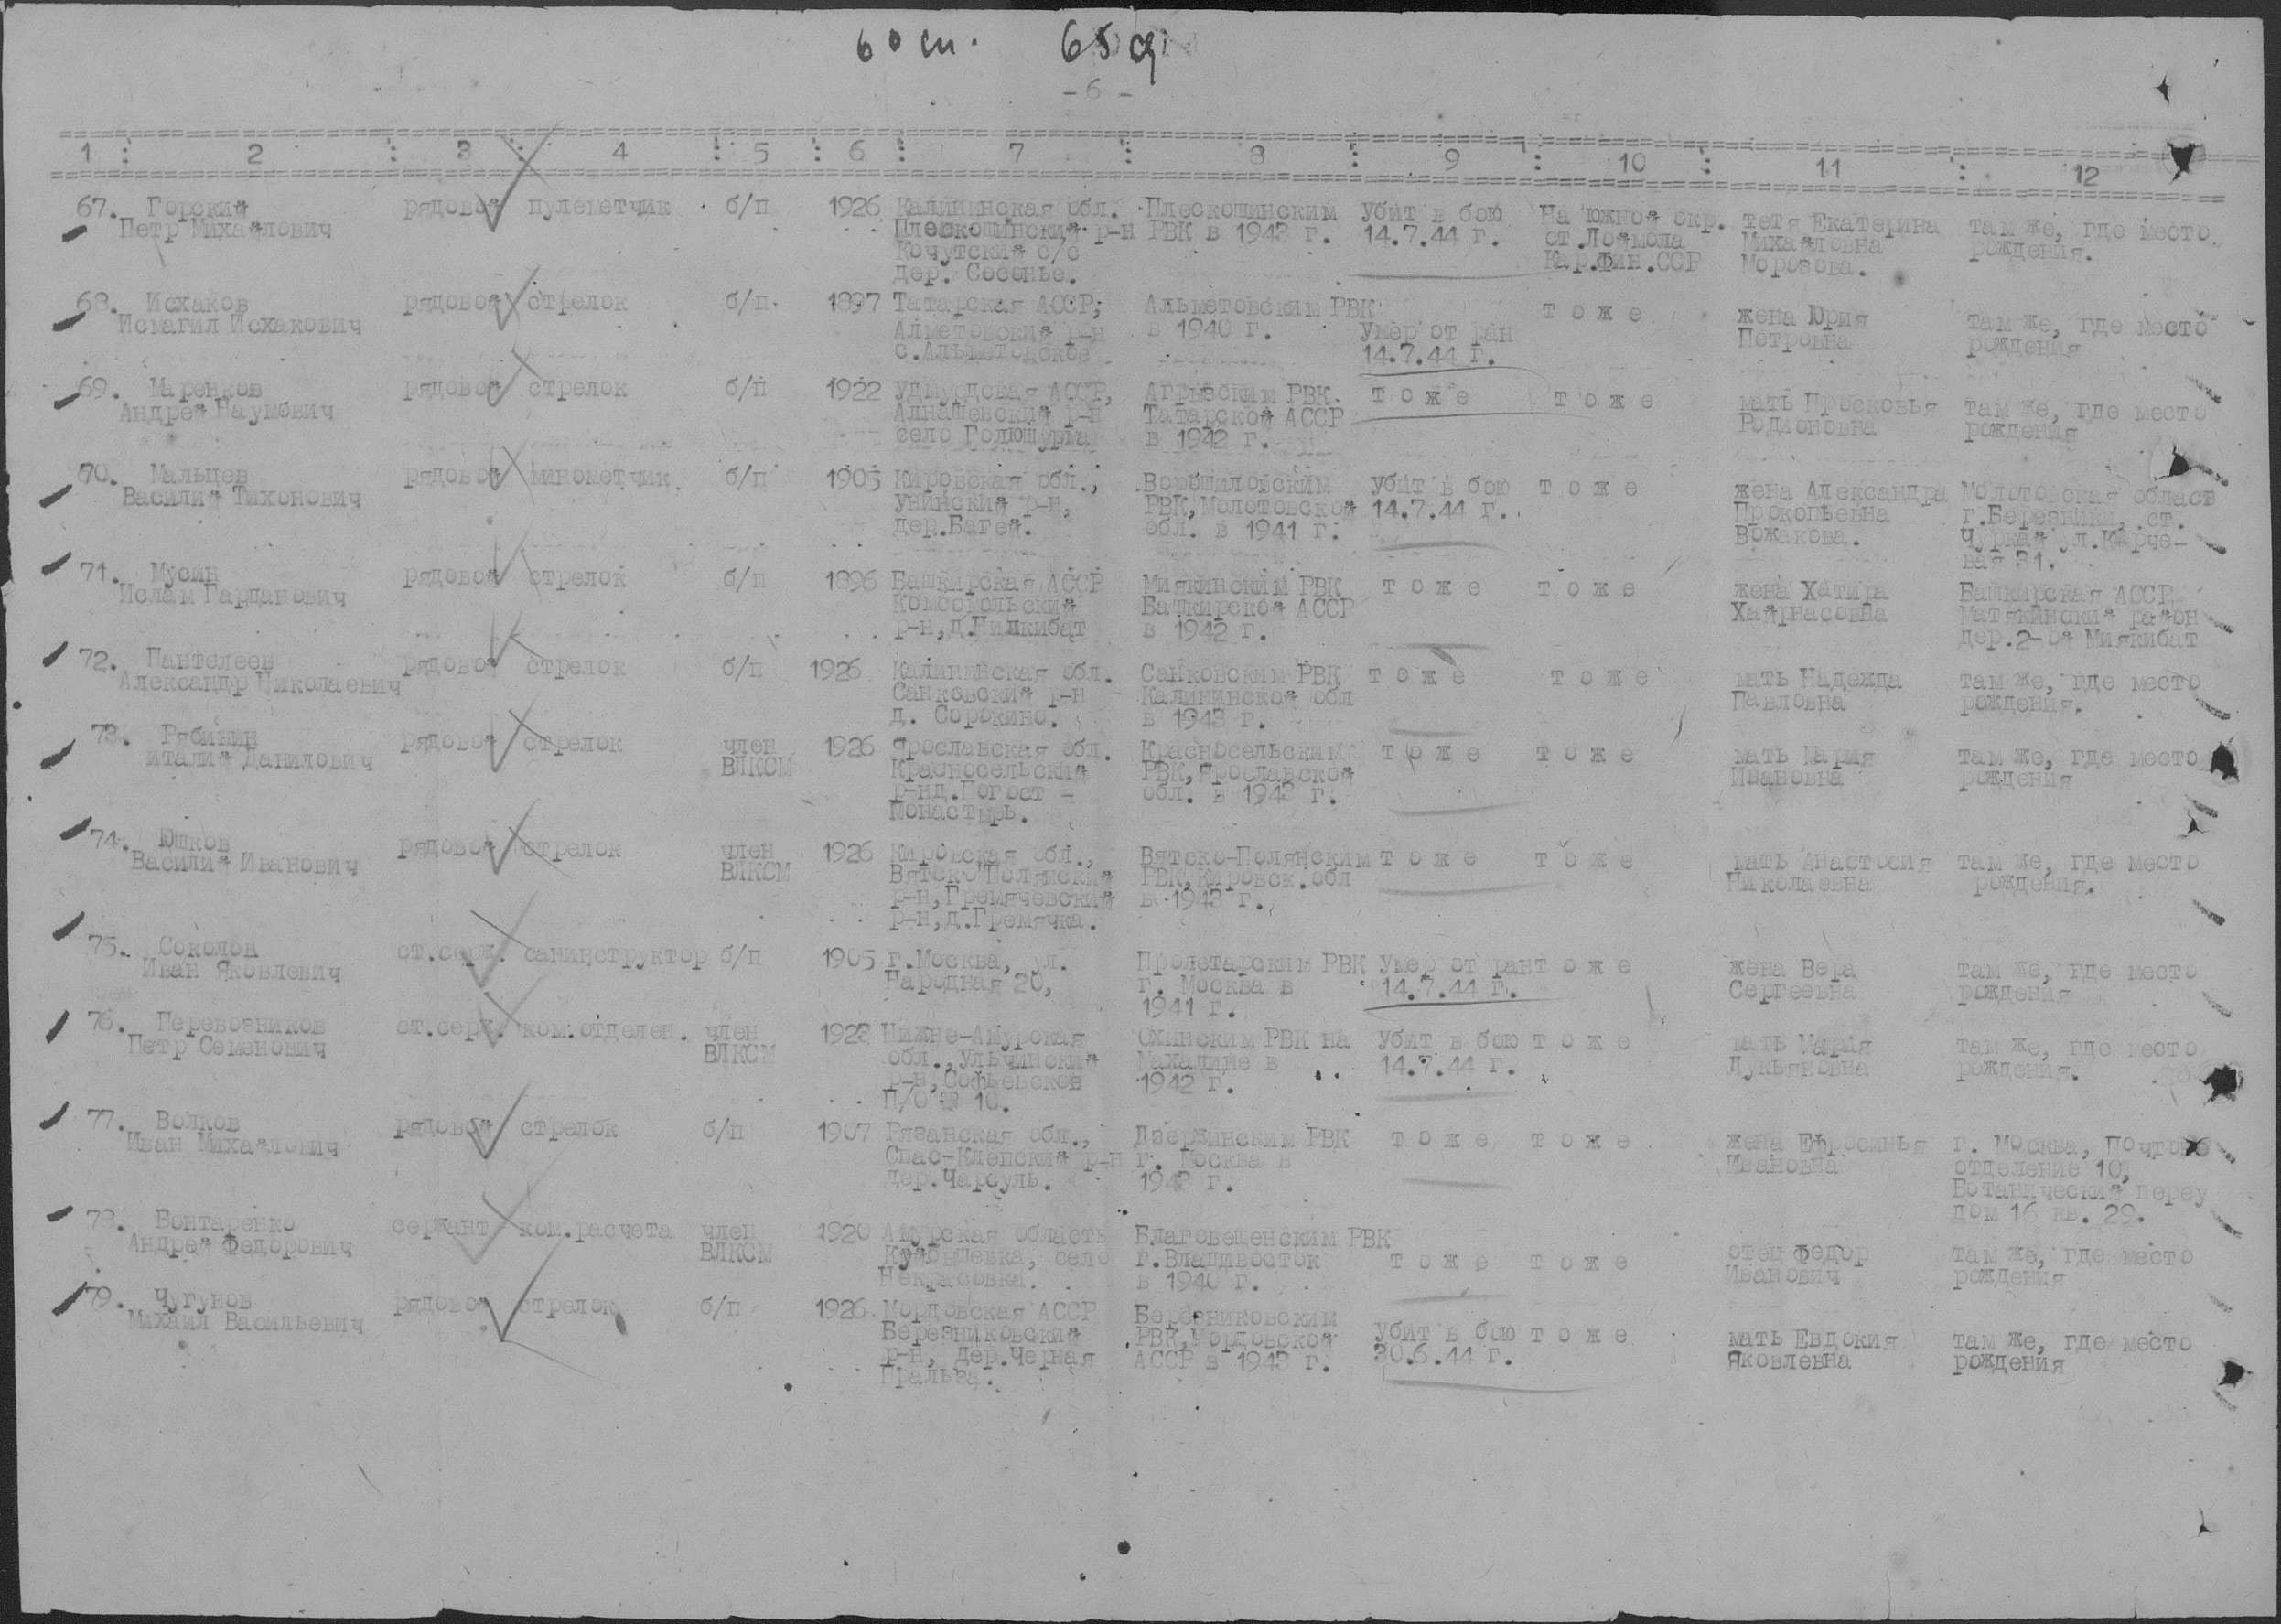 60 сп. 65 сд
- 6 -
1 : 2 : 3 : 4 : 5 : 6 : 7 : 8 : 9 : 10 : 11 : 12
67. Горский рядовой пулеметчик б/п 1926 Калининская обл. Плескошинским Убит в бою На южной окр. тетя Екатерина там же, где место
Петр Михайлович Плескошинский р-н РВК в 1943 г. 14.7.44 г. ст.Лоймола Михайловна рождения.
Кочутский с/с Кар.Фин.ССР Морозова.
дер. Сосонье.
68. Исхаков рядовой стрелок б/п. 1897 Татарская АССР, Альметовским РВК тоже жена Юрия там же, где место
Исмагил Исхакович Алметовский р-н в 1940 г. умер от ран Петровна рождения
с.Альметовское 14.7.44 г.
69. Маренков рядовой стрелок б/п 1922 Удмурдская АССР, Агрызским РВК тоже тоже мать Просковья там же, где место
Андрей Наумович Алнашевский р-н Татарской АССР Родионовна рождения
село Голюшурма в 1942 г.
70. Мальцев рядовой минометчик б/п 1905 Кировская обл., Ворошиловским убит в бою тоже жена Александра Молотовская област
Василий Тихонович Унинский р-н, РВК,Молотовской 14.7.44 г. Прокопьевна г.Березники, ст.
дер.Багей. обл. в 1941 г. Вожакова. Чуркай ул.Карче-
вая 31.
71. Мусин рядовой стрелок б/п 1896 Башкирская АССР Миякинским РВК тоже тоже жена Хатира Башкирская АССР
Ислам Гарданович Комсомольский Башкирской АССР Хайрнасовна Матякинский район
р-н,д.Нилкибат в 1942 г. дер.2-ой Миякибат
72. Пантелеев рядовой стрелок б/п 1926 Калининская обл. Санковским РВК тоже тоже мать Надежда там же, где место
Александр Николаевич Санковский р-н Калининской обл Павловна рождения.
д. Сорокино. в 1943 г.
73. Рябинин рядовой стрелок член 1926 Ярославская обл. Красносельским тоже тоже мать Мария там же, где место
Италий Данилович ВЛКСМ Красносельский РВК,Ярославской Ивановна рождения
р-нд.Погост - обл. в 1943 г.
Монастырь.
74. Юшков рядовой стрелок член 1926 Кировская обл., Вятско-Полянским тоже тоже мать Анастосия там же, где место
Василий Иванович ВЛКСМ Вятско Полянский РВК,Кировск.обл Николаевна рождения.
р-н,Гремячевский в 1943 г.
р-н,д.Гремячка.
75. Соколов ст.серж. санинструктор б/п 1905 г.Москва, ул. Пролетарским РВК Умер от ран тоже жена Вера там же, где место
Иван Яковлевич Народная 20, г. Москва в 14.7.44 г. Сергеевна рождения
1941 г.
76. Перевозников ст.серж. ком.отделен. член 1923 Нижне-Амурская Охинским РВК на Убит в бою тоже мать Мария там же, где место
Петр Семенович ВЛКСМ обл.,Ульчинский в 14.7.44 г. Лукьяновна рождения.
р-н,Софьевское 1942 г.
п/о 10.
77. Волков рядовой стрелок б/п 1907 Рязанская обл., Дзержинским РВК тоже тоже жена Ефросинья г. Москва, Почтов
Иван Михайлович Спас-Клепский р-н г. Москва в Ивановна отделение 10,
дер.Чарсуль. 1943 г. Ботанический переу
дом 16 кв. 29.
78. Бонтаренко сержант ком.расчета член 1920 Амурская область Благовещенским РВК
Андрей Федорович ВЛКСМ Куйбышевка, село г.Владивосток тоже тоже отец Федор там же, где место
Некрасовка. в 1940 г. Иванович рождения
79. Чугунов рядовой стрелок б/п 1926 Мордовская АССР Березниковским
Михаил Васильевич Березниковский РВК,Мордовской убит в бою тоже мать Евдокия там же, где место
р-н, дер.Черная АССР в 1943 г. 30.6.44 г. Яковлевна рождения